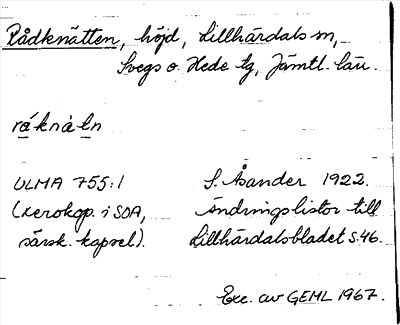 Rådknätten, höjd, Lillhärdals sn,
Svegs o. Hede tg, Jämtl. län.
råknàtn
ULMA 755:1 S. Åsander 1922.
(xerokop. i SOA, Ändringslistor till
särsk. kapsel). Lillhärdalsbladet s. 46.
Exc. av GEML 1967.